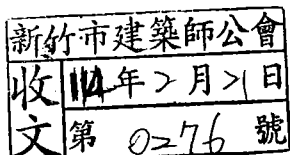 新竹市建築師公會
收文
114年2月21日
第 0276 號